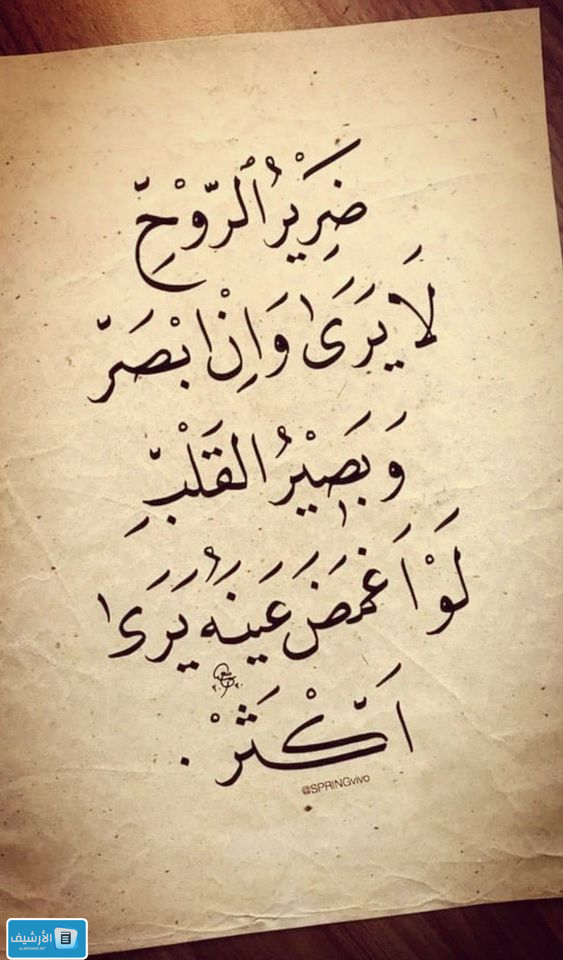 ضَرِيْرُ ٱلرّوْحِّ
لَا يَرَىٰ وَاِنْ ابْصَرّ
وَبَصِيْرُ القَلْبِّ
لَوْ اَغمَضَ عَينَهُ يَرَىٰ
اَكْثَرْ .
@SPRINGvivo
الأرشيف